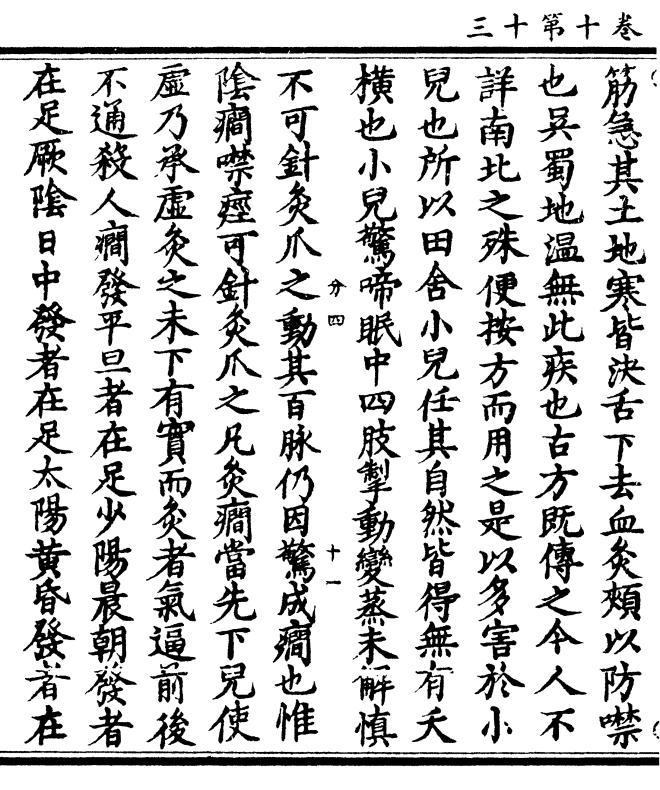 卷十第十三
筋急其土地寒皆決舌下去血灸頰以防噤
也吳蜀地温無此疾也古方既傳之今人不
詳南北之殊便按方而用之是以多害於小
兒也所以田舍小兒任其自然皆得無有夭
橫也小兒驚啼眠中四肢掣動變蒸未解慎
分四
十一
不可針灸爪之動其百脉仍因驚成癇也惟
陰癇噤痙可針灸爪之凡灸癇當先下兒使
虛乃承虛灸之未下有實而灸者氣逼前後
不通殺人癇發平旦者在足少陽晨朝發者
在足厥陰日中發者在足太陽黄昏發者在